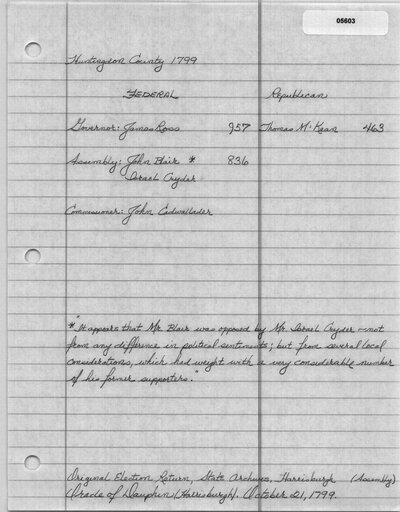 05603
Huntingdon County 1799
FEDERAL Republican
Governor: James Ross 957 Thomas McKean 463
Assembly: John Blair * 836
Israel Cryder
Commissioner: John Cadwallader
* "It appears that Mr. Blair was opposed by Mr. Israel Cryder—not
from any difference in political sentiments; but from several local
considerations, which had weight with a very considerable number
of his former supporters."
Original Election Return, State Archives, Harrisburgh (Assembly)
Oracle of Dauphin (Harrisburgh). October 21, 1799.